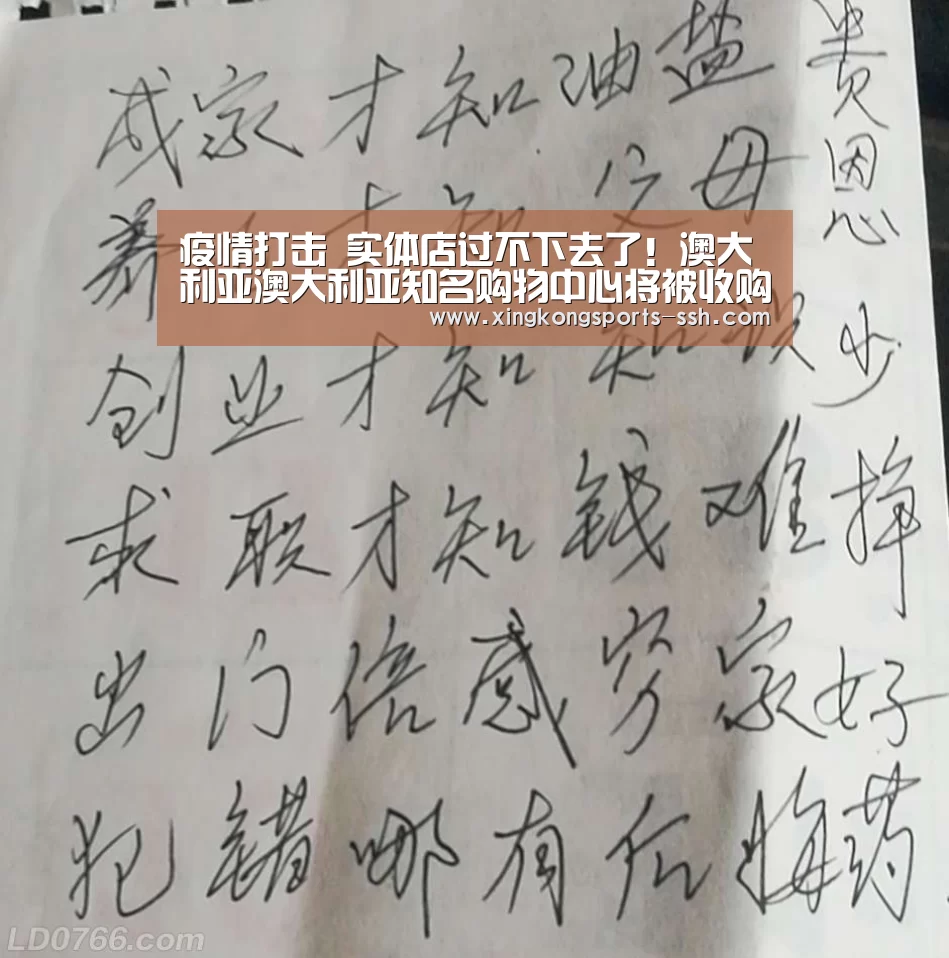 成家才知油盐贵
养 才知父母恩
疫情打击 实体店过不下去了！澳大
利亚澳大利亚知名购物中心将被收购
www.xingkongsports-ssh.com
创业才知知识少
求职才知钱难挣
出门倍感穷家好
犯错哪有后悔药
LD0766.com